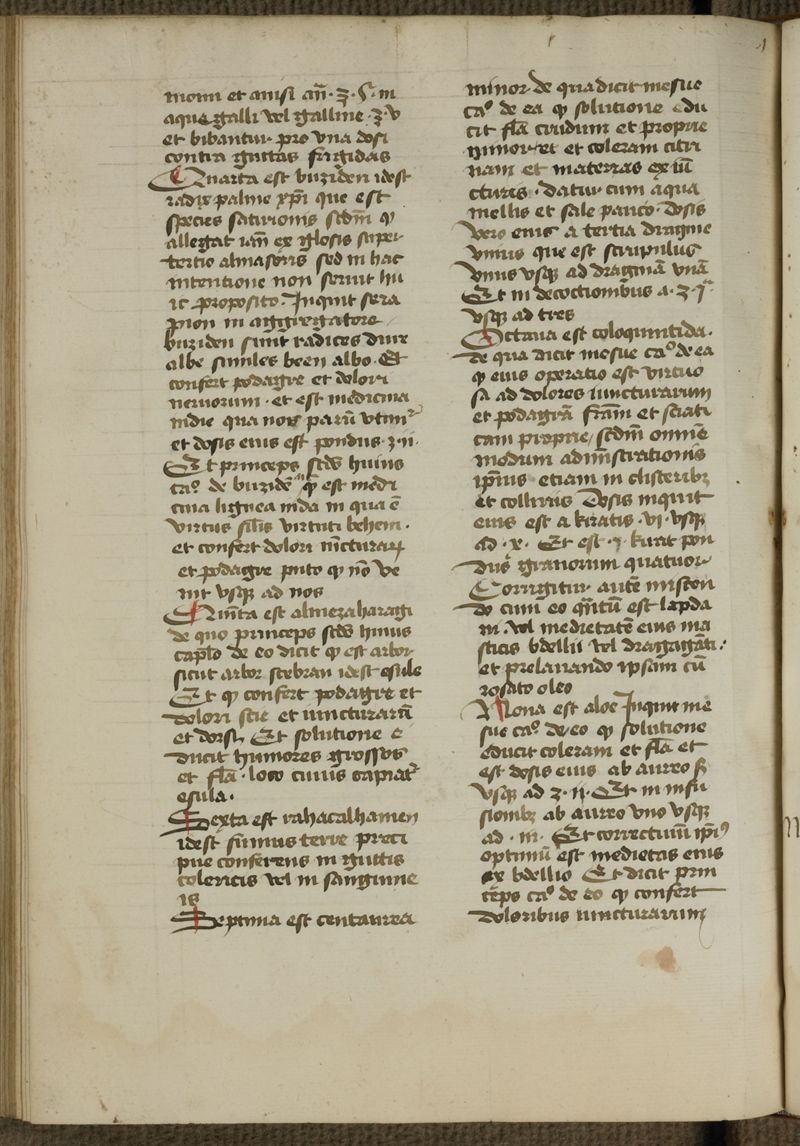 momi et anisi an̄ · ʒ · ʃ · m
aque galli vel galline · ʒ · v
et bibantur pro vna dosi
contra guttas frigidas
Quarta est buziden idest
radix palme xp̄i que est
species satirionis scdm̄ qƺ
allegat ian̄ ex glosis super
tertio almasoris sed in hac
intentione non seruit hu
ic proposito · Inquit sera
pion in aggregatore
buziden sunt radices dure
albe similes been albo · Et
confert podagre et dolori
neruorum · et est medicina
indie qua nos parū vtimᷣ
et dosis eius est pondus · ʒ · ii ·
Et princeps scd̄s huius
caᵒ de buzidē qƺ est medi
cina lignea inda in qua ē
virtus sil̄is virtuti behem ·
et confert dolori iūcturaꝝ
et podagre puto qƺ nō ve
nit vsqꝫ ad nos
Quīta est almezaharagi
de quo princeps scd̄s huius
capl̄o de eo dicit qƺ est arbor
sicut arbor scebran idest esule
Et qƺ confert podagre et
dolori scie et iuncturarū
et dorsi, Et solutione e
ducit humores grossos
et fl̄a · loco cuius capiatᷣ
esula ·
Sexta est rahacalhamen
idest fumus terre preci
pue conferens in guttis
colericis vel in sanguine
is
Septima est centaurea
minor de qua dicit mesue
caᵒ de ea qƺ solutione edu
cit fl̄a crudum et proprie
minor et et coleram citri
nam et materias ex iū
cturis · datur cum aqua
mellis et sale pauco · dosis
vero eius a tertia dragme
vnius que est scrupulus
vnus vsqꝫ ad dragmā vnā
Et in decoctionibus a · ʒ · j ·
vsqꝫ ad tres
Octaua est coloquintida ·
de qua dicit mesue caᵒ de ea
qƺ eius operatio est virtuo
sa ad dolores iuncturarum
et podagrā fr̄am et sciati
cam proprie scdm̄ omnē
modum admīstrationis
ip̄ius etiam in clisteribꝫ
et colliriis Dosis inquit
eius est a kiratis · vi · vsqꝫ
ad · x · Et est · j · kirat pon
dus granorum quatuor
Corrigitur autē miscen
do cum eo qn̄tū est lapda
m̄ · vel medietatē eius ma
sticis bdellii vel dragagāti ·
et prelauando ipsam cū
rosato oleo
Nona est aloe Inquit me
sue caᵒ de eo qƺ solutione
educit coleram et fl̄a et
est dosis eius ab aureo ʃ
vsqꝫ ad ʒ · ii · Et in infu
sionibꝫ ab aureo vno vsqꝫ
ad · iii · Et correctum ip̄iꝰ
optimū est medietas eius
ex bdellio Et dicit prin
cēps caᵒ de eo qƺ confert
doloribus iuncturarum